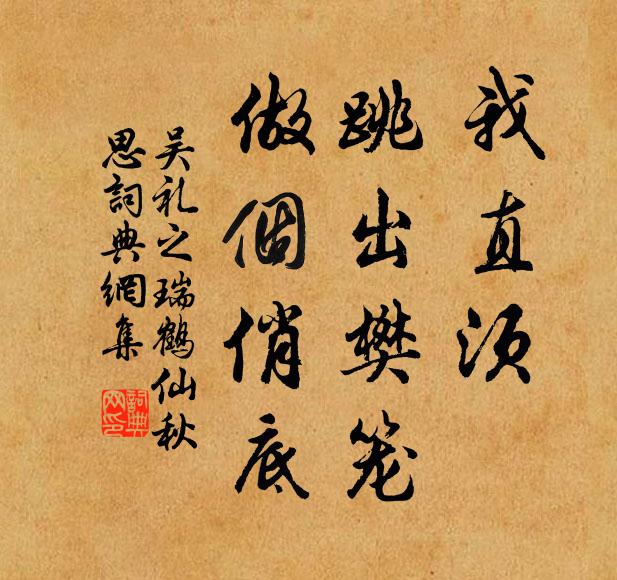 我直须
跳出樊笼
做個俏底
吴礼之瑞鹤仙秋
思詞典網集
詞典网印